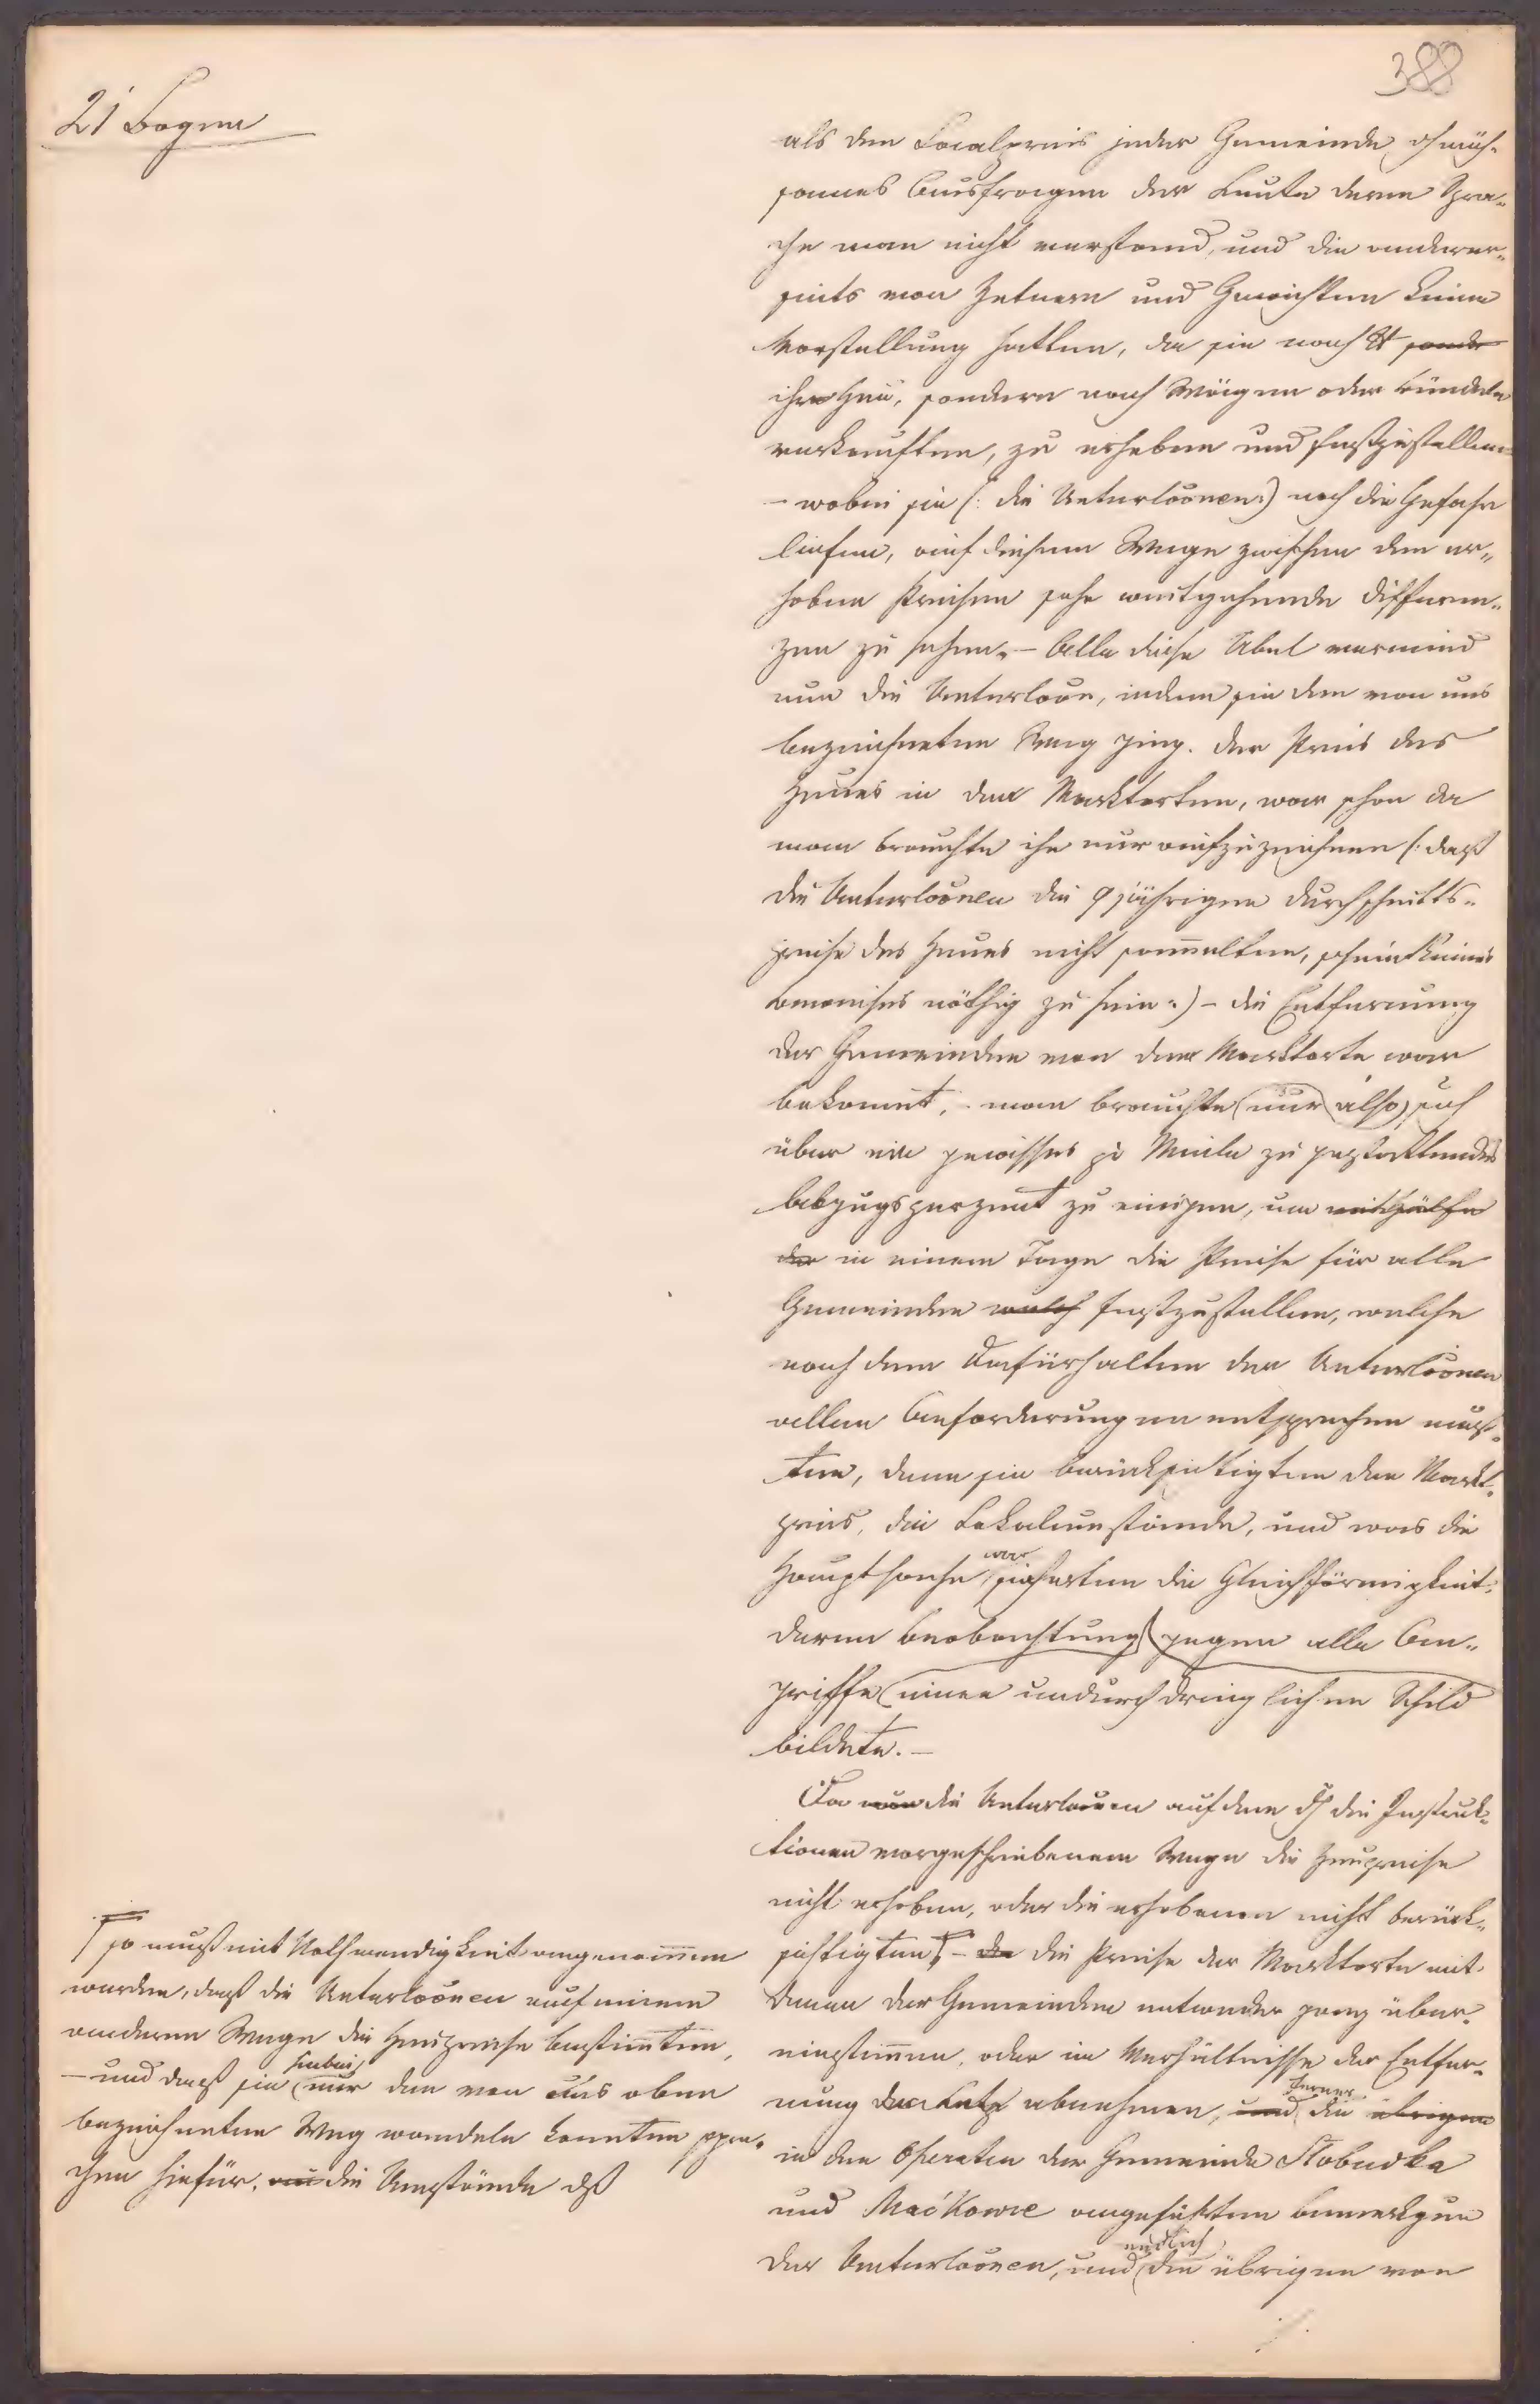 388
21 Bogen
als den Localpreis jeder Gemeinde dch müh-
sames Ausfragen der Leute deren Spra-
che man nicht verstand, und die anderer-
seits von Zetnern und Gewichten keine
Vorstellung hatten, da sie nach ℔ sonder
ihr Heu, sondern nach Wägen oder Bündeln
verkauften, zu erheben und festzustellen
– wobei sie (: die Unterlooñen :) noch die Gefahr
liefen, auf diesem Wege zwischen den er-
hoben Preisen sehr weitgehende Differen-
zen zu sehen. – Alle diese Übel vermied
nun die Unterlooñ, indem sie den von uns
bezeichneten Weg ging. Der Preis des
Heues in den Marktorten, war schon da
man brauchte ihn nur aufzuzeichnen (: daß
die Unterlooñen die 9 jährigen Durchschnitts-
preise des Heues nicht sam̄elten, scheint keines
Beweises nöthig zu sein :) – die Entfernung
der Gemeinden von dem Marktorte war
bekannt, – man brauchte nur also sich
über ein gewisses pr Meile zu gestattendes
Abzugsperzent zu einigen, um mit Hülfe
der in einem Tage die Preise für alle
Gemeinden welch festzustellen, welche
nach dem Dafürhalten der Unterlooñen
allen Anforderungen entsprechen muß-
ten, denn sie berücksichtigten den Markt-
preis, die Lokalumstände, und was die
Hauptsache war sicherten die Gleichförmigkeit,
deren Beobachtung gegen alle An-
griffe einen undurchdringlichen Schild
bildete. –
Da nun die Unterlooñen auf dem dch die Instruk-
tionen vorgeschriebenem Wege die Heupreise
nicht erhoben, oder die erhobenen nicht berück-
sichtigten, – da die Preise der Marktorte mit
denen der Gemeinden entweder ganz über-
einstim̄en, oder im Verhältnisse der Entfer-
nung der Letz abnehmen, und ferner die übrigen
in den Operaten der Gemeinde Slobudka
und Mackowce angeführten Bemerkgen
der Unterlooñen, und endlich die übrigen von
so muß mit Nothwendigkeit angenom̄en
werden, daß die Unterlooñen auf einem
anderen Wege die Heupreise bestim̄ten,
– und daß sie hiebei nur den von uns oben
bezeichneten Weg wandeln konnten spre-
chen hiefür. die Umstände dß